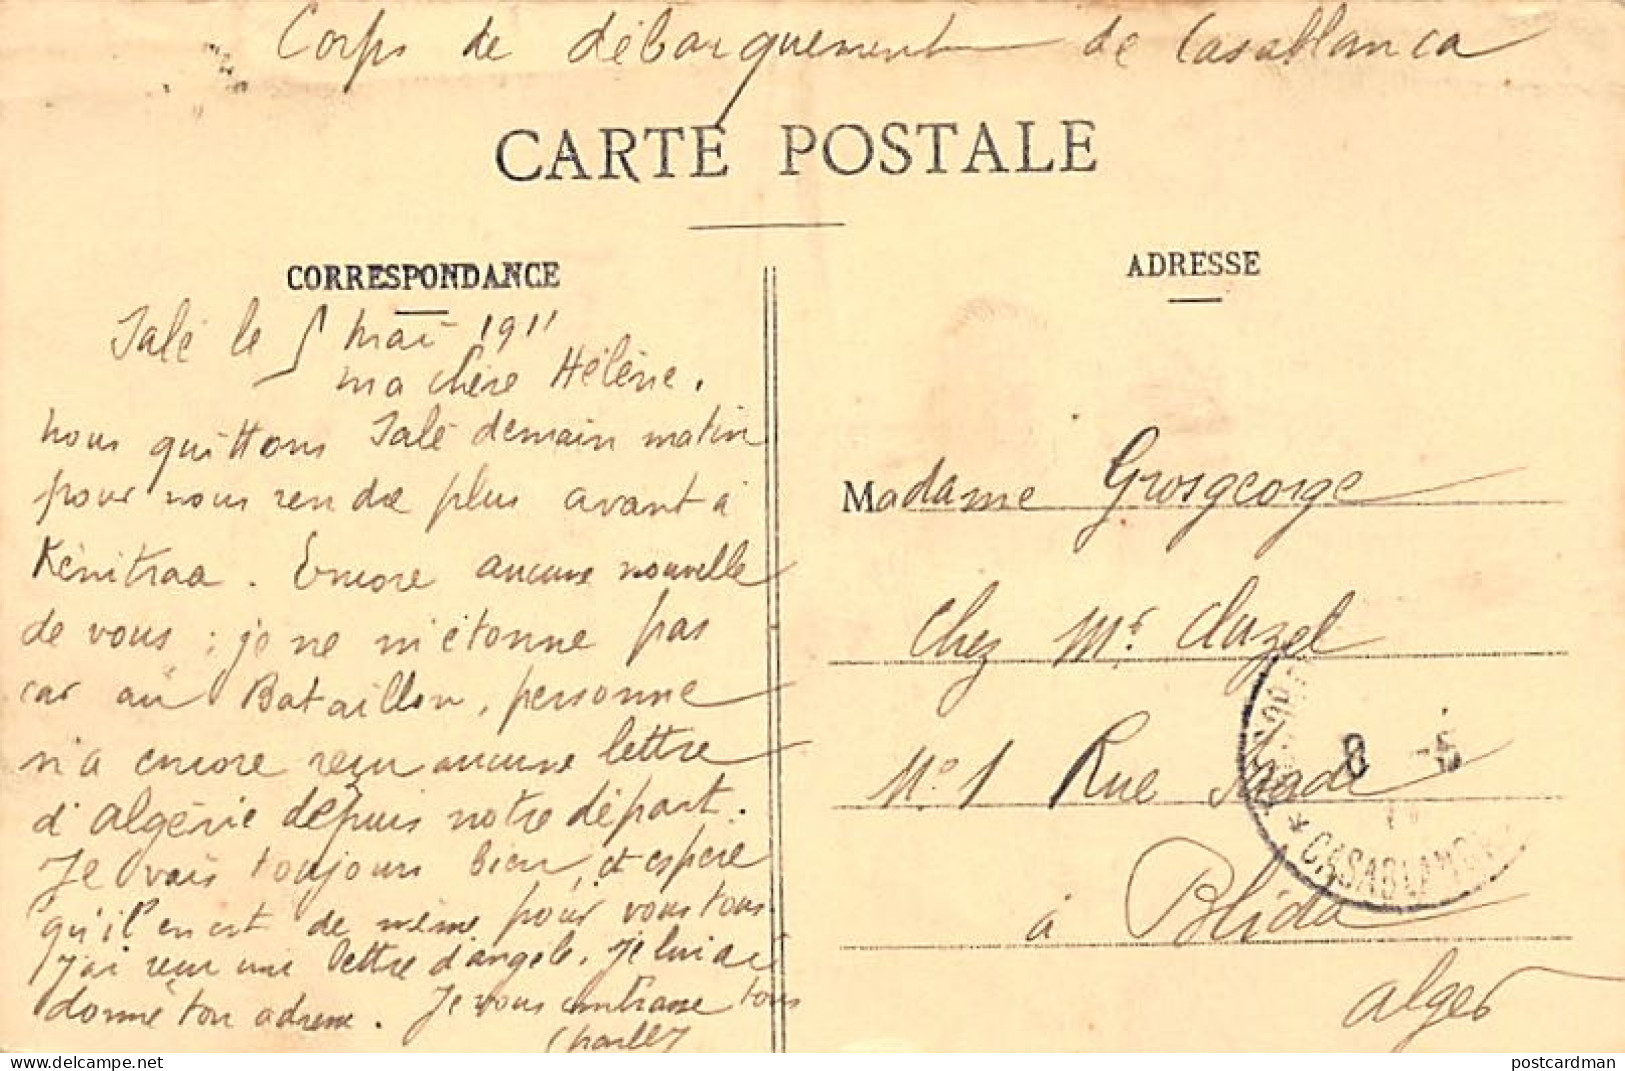 Corps de débarquement de Casablanca
CARTE POSTALE
CORRESPONDANCE
Salé le 5 mai 1911
ma chère Hélène.
nous quittons Salé demain matin
pour nous rendre plus avant à
Kénitraa. Encore aucune nouvelle
de vous ; je ne m'étonne pas
car au Bataillon, personne
n'a encore reçu aucune lettre
d'algérie depuis notre départ.
Je vais toujours bien, et espère
qu'il en est de même pour vous tous.
j'ai reçu une lettre d'angèle. je lui ai
donné ton adresse. Je vous embrasse tous
Charles
ADRESSE
Madame Grosgeorge
chez Mr. Cluzel
N° 1 Rue
à Blida
alger
8 -5
* CASABLANCA
postcardman
delcampe.net